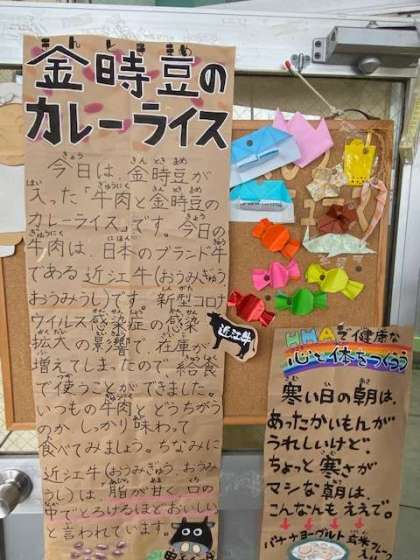 きんときまめ
金時豆の
カレーライス
今日は、金時豆が
入った「牛肉と金時豆の
カレーライス」です。今日の
牛肉は、日本のブランド牛
である近江牛(おうみぎゅう
おうみうし)です。新型コロナ
ウイルス感染症の感染
拡大の影響で、在庫が
増えてしまったので、給食
で使うことができました。
いつもの牛肉とどうちがう
のかしっかり味わって
食べてみましょう。ちなみに
近江牛(おうみぎゅう、おうみ
うし)は、脂が甘く口の
中でとろけるほどおいしい
と言われています。
近江牛
HMAで健康な
心と体をつくろう
寒い日の朝は、
あったかいもんが
うれしいけど、
ちょっと寒さが
マシな朝は、
こんなんもええで。
バナナヨーグルト